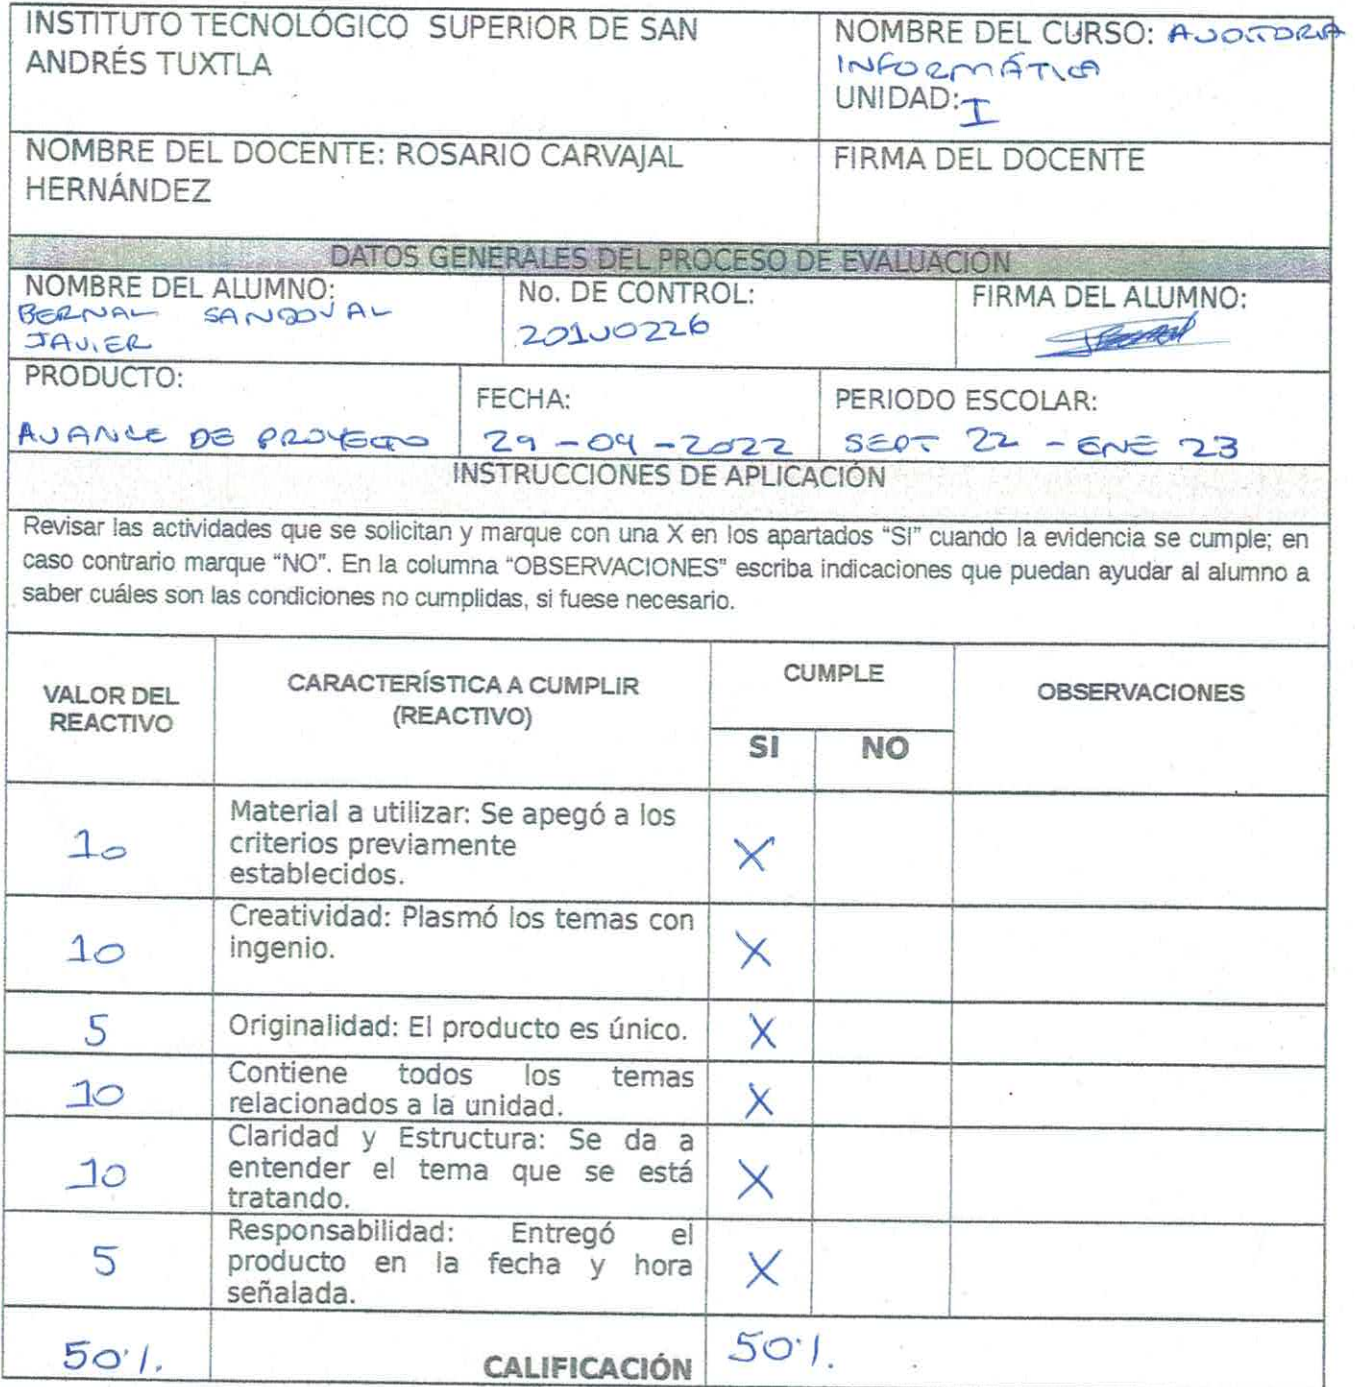 INSTITUTO TECNOLÓGICO SUPERIOR DE SAN
ANDRÉS TUXTLA
NOMBRE DEL CURSO: AUDITORIA
INFORMÁTICA
UNIDAD: I
NOMBRE DEL DOCENTE: ROSARIO CARVAJAL
HERNÁNDEZ
FIRMA DEL DOCENTE
DATOS GENERALES DEL PROCESO DE EVALUACIÓN
NOMBRE DEL ALUMNO:
BERNAL SANDOVAL
JAVIER
No. DE CONTROL:
201U0226
FIRMA DEL ALUMNO:
PRODUCTO:
AVANCE DE PROYECTO
FECHA:
29-09-2022
PERIODO ESCOLAR:
SEPT 22 - ENE 23
INSTRUCCIONES DE APLICACIÓN
Revisar las actividades que se solicitan y marque con una X en los apartados “SI” cuando la evidencia se cumple; en
caso contrario marque “NO”. En la columna “OBSERVACIONES” escriba indicaciones que puedan ayudar al alumno a
saber cuáles son las condiciones no cumplidas, si fuese necesario.
VALOR DEL
REACTIVO
CARACTERÍSTICA A CUMPLIR
(REACTIVO)
CUMPLE
SI NO
OBSERVACIONES
10
Material a utilizar: Se apegó a los
criterios previamente
establecidos.
X
10
Creatividad: Plasmó los temas con
ingenio.
X
5
Originalidad: El producto es único.
X
10
Contiene todos los temas
relacionados a la unidad.
X
10
Claridad y Estructura: Se da a
entender el tema que se está
tratando.
X
5
Responsabilidad: Entregó el
producto en la fecha y hora
señalada.
X
50%.
CALIFICACIÓN
50%.